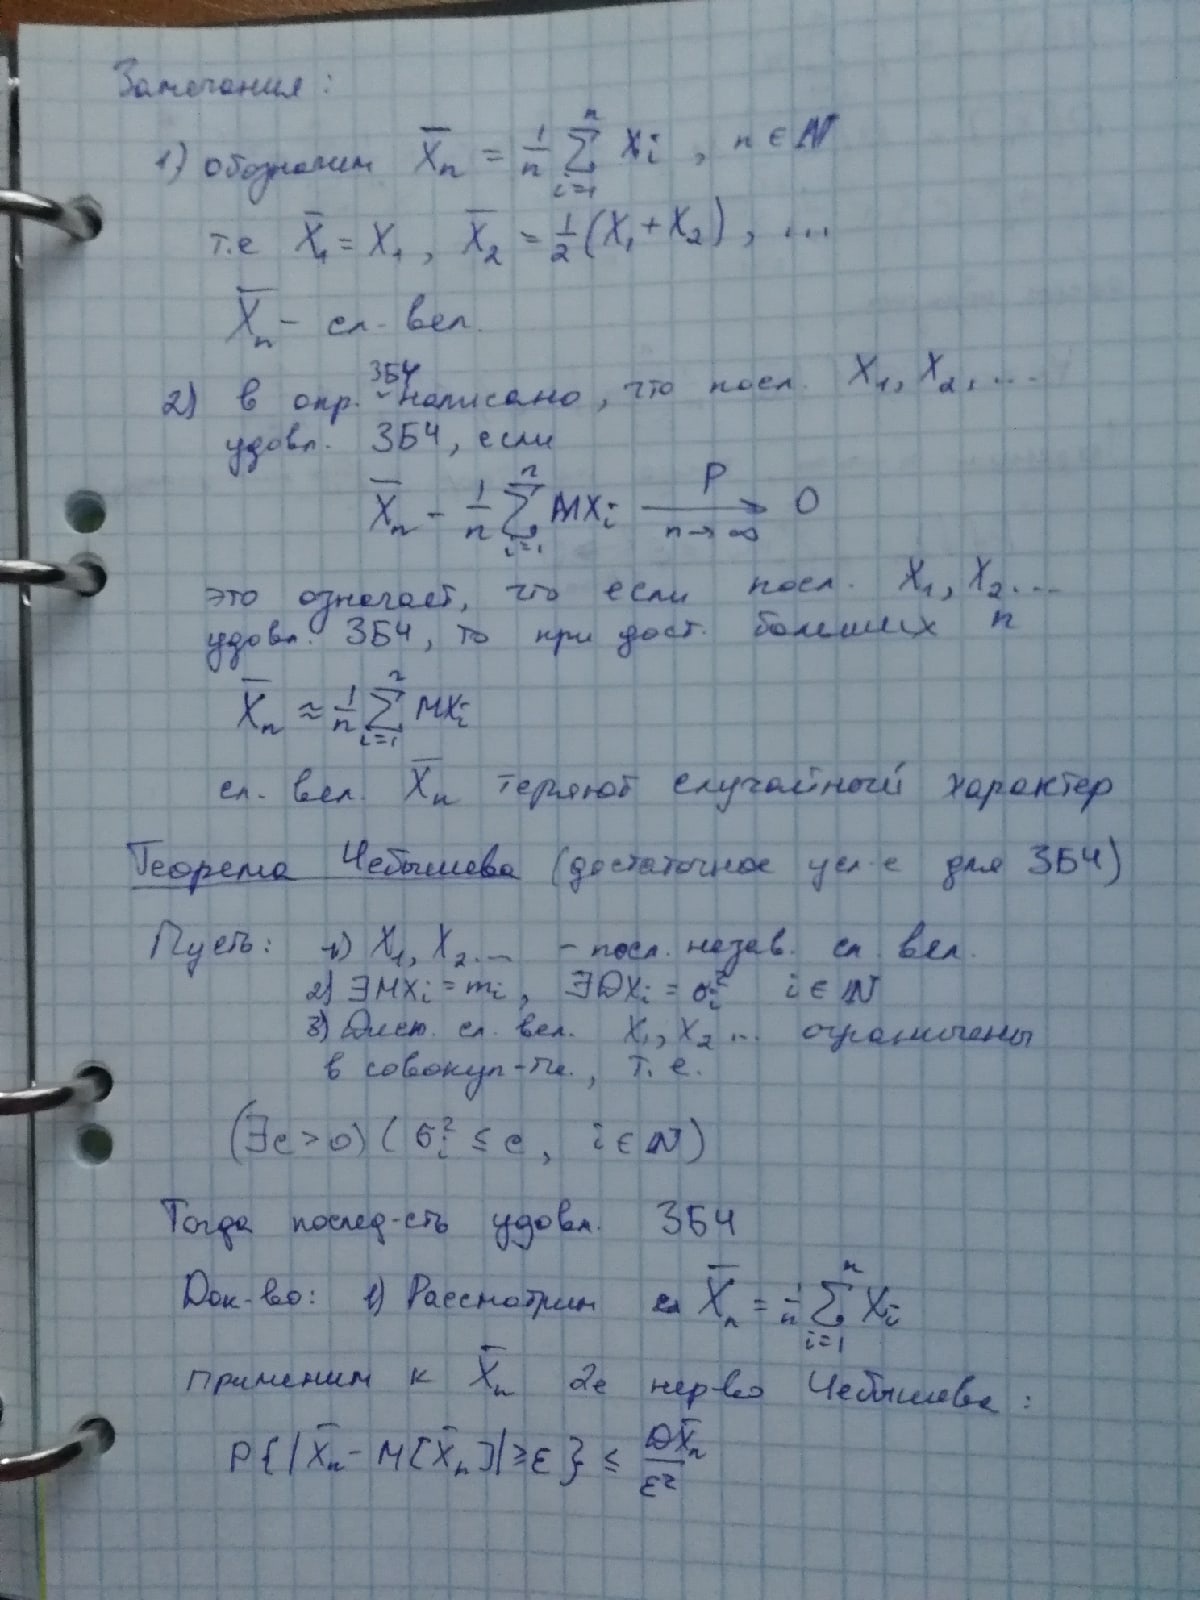 Замечания:
1) обозначим X̄ₙ = 1/n ∑ᵢ₌₁ⁿ Xᵢ, n ∈ ℕ
т.е X̄₁ = X₁, X̄₂ = 1/2 (X₁ + X₂), ...
X̄ₙ - сл. вел.
2) в опр. ЗБЧ написано, что посл. X₁, X₂, ...
удовл. ЗБЧ, если
X̄ₙ - 1/n ∑ᵢ₌₁ⁿ MXᵢ —P→ (n→∞) 0
это означает, что если посл. X₁, X₂ ...
удовл. ЗБЧ, то при дост. больших n
X̄ₙ ≈ 1/n ∑ᵢ₌₁ⁿ MXᵢ
сл. вел. X̄ₙ теряют случайный характер
Теорема Чебышева (достаточное усл-е для ЗБЧ)
Пусть: 1) X₁, X₂ ... - посл. незав. сл. вел.
2) ∃MXᵢ = mᵢ, ∃DXᵢ = σᵢ² i ∈ ℕ
3) Дисп. сл. вел. X₁, X₂ ... ограничены
в совокуп-ти., т.е.
(∃c > 0) (σᵢ² ≤ c, i ∈ ℕ)
Тогда послед-сть удовл. ЗБЧ
Док-во: 1) Рассмотрим сл X̄ₙ = 1/n ∑ᵢ₌₁ⁿ Xᵢ
применим к X̄ₙ 2е нер-во Чебышева:
P{|X̄ₙ - M[X̄ₙ]| ≥ ε} ≤ DX̄ₙ/ε²